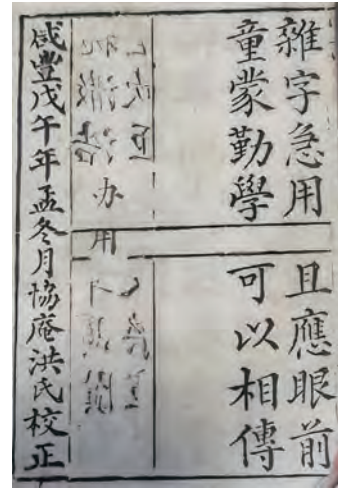 雜字急用
童蒙勤學
且應眼前
可以相傳
办
用
咸豐戊午年孟冬月協庵洪氏校正